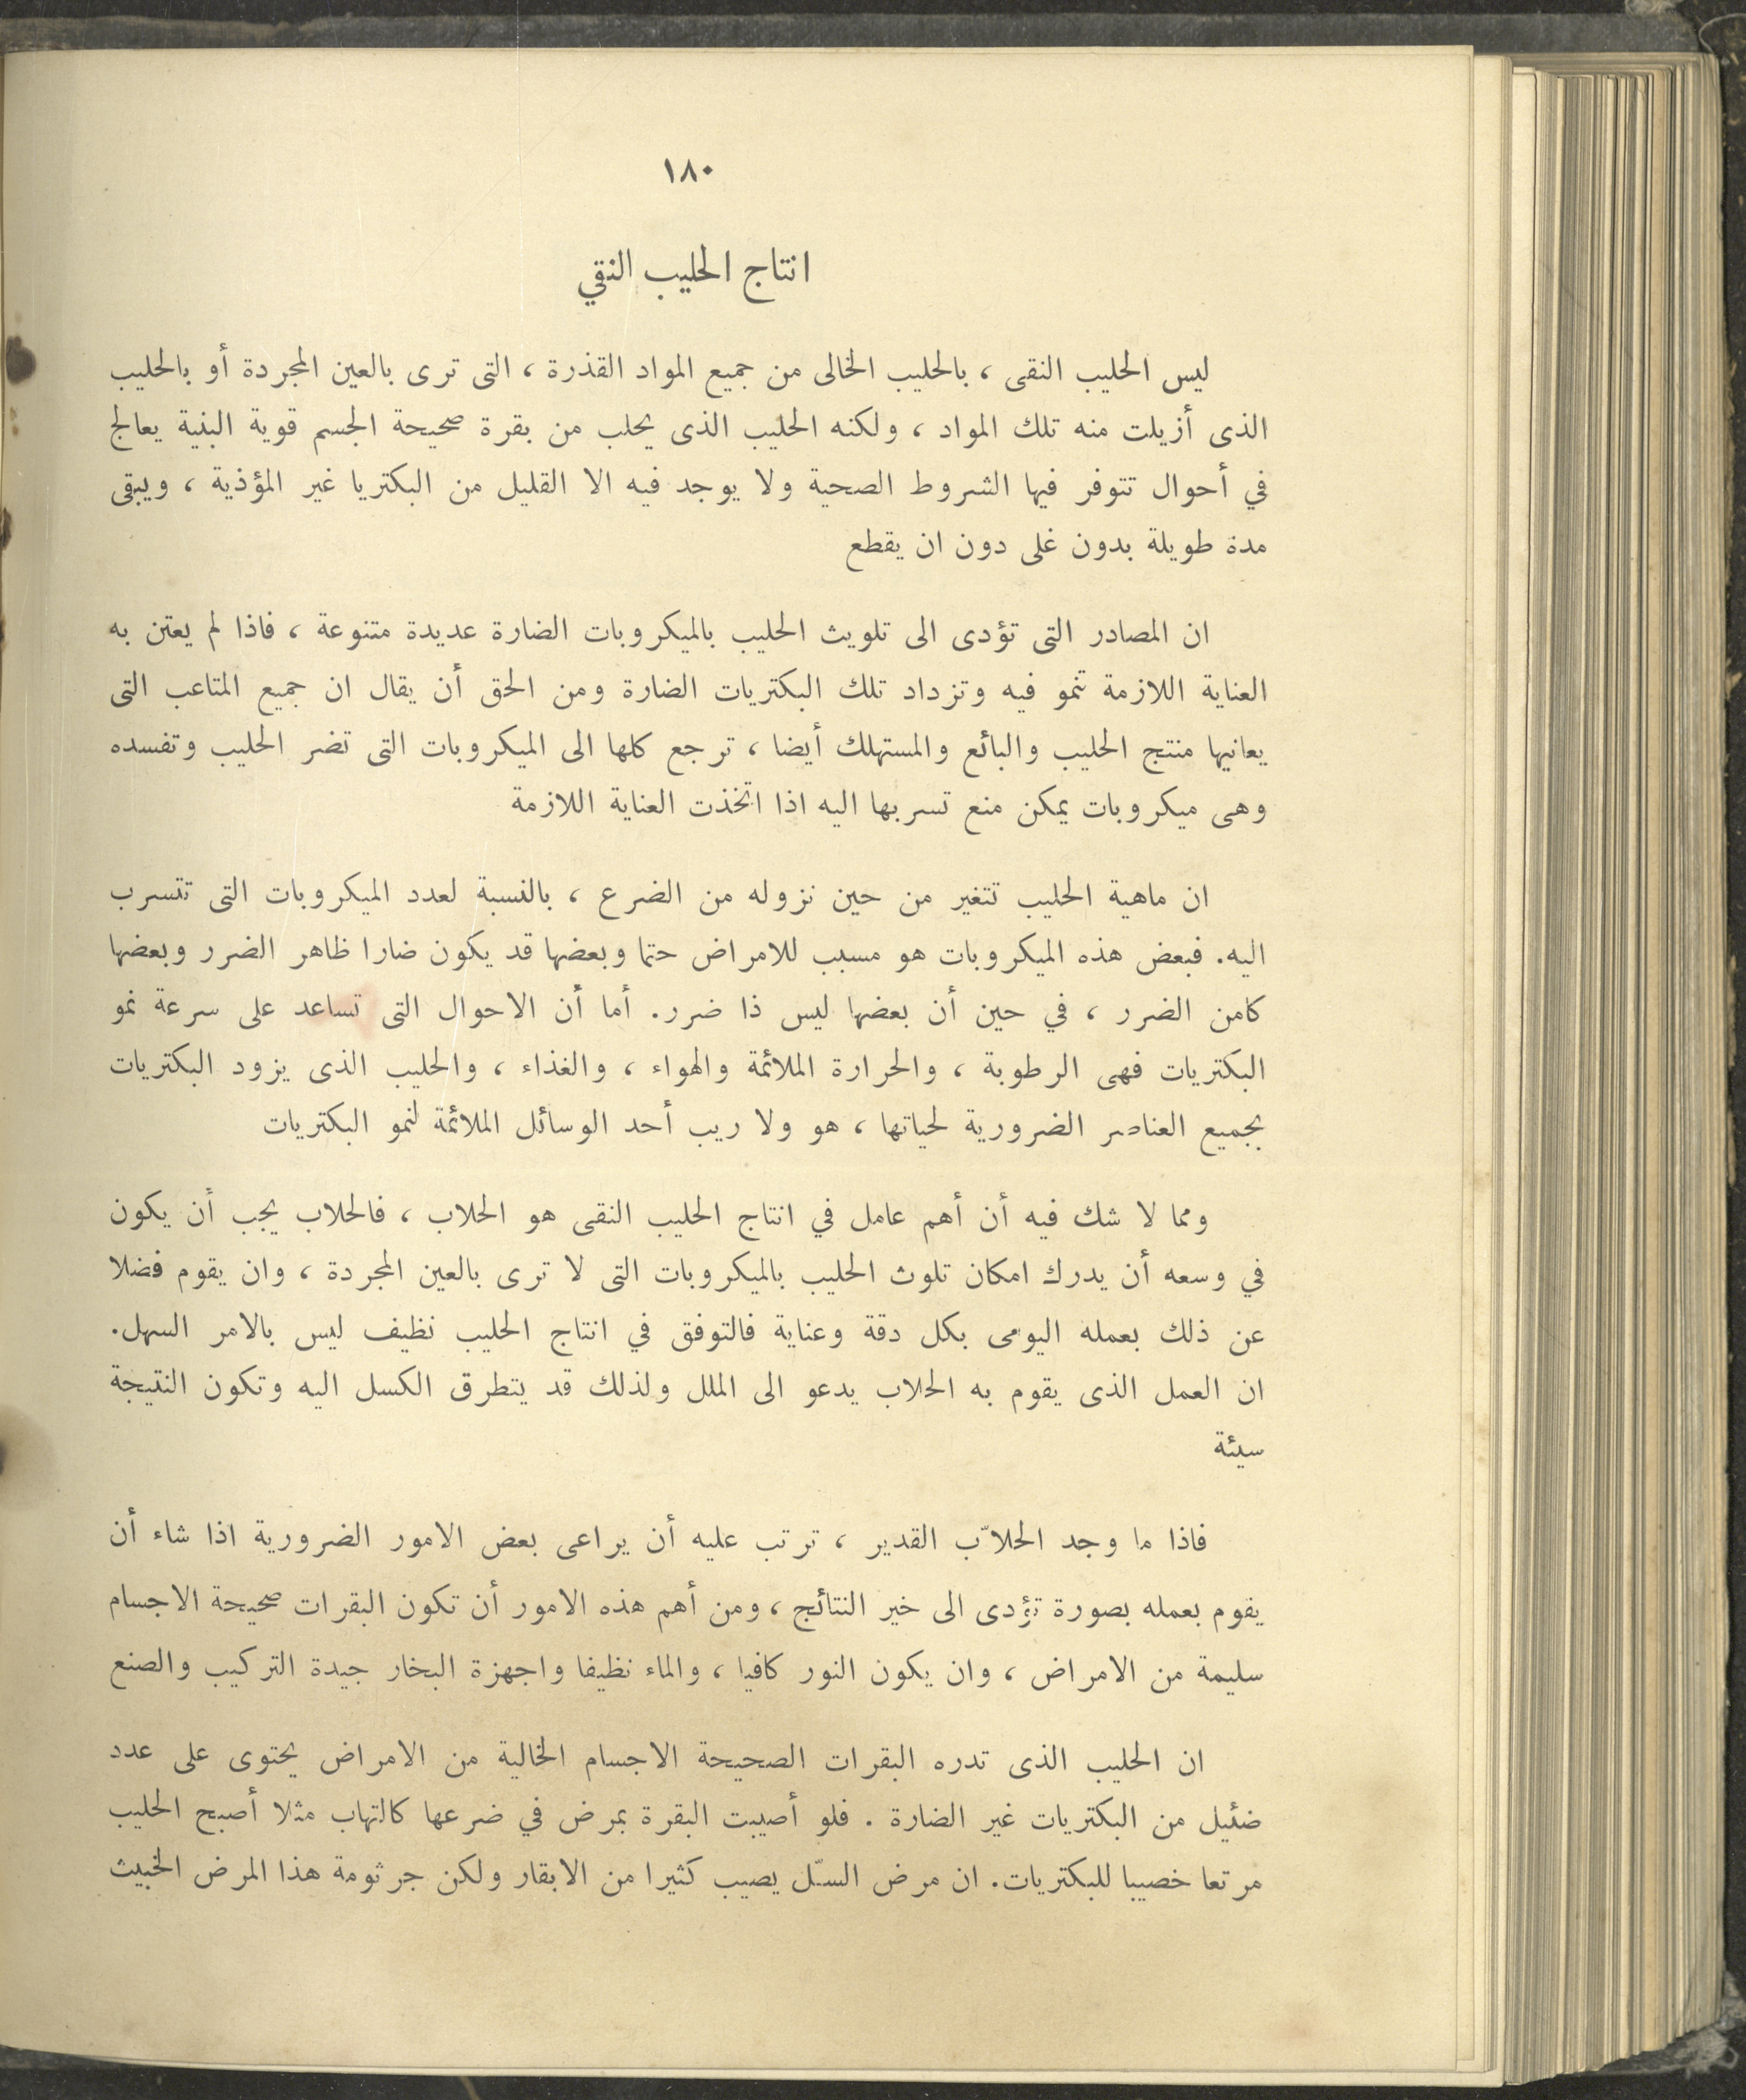 ١٨٠
انتاج الحليب النقي
ليس الحليب النقى ، بالحليب الخالى من جميع المواد القذرة ، التى ترى بالعين المجردة أو بالحليب
الذى أزيلت منه تلك المواد ، ولكنه الحليب الذى يحلب من بقرة صحيحة الجسم قوية البنية يعالج
في أحوال تتوفر فيها الشروط الصحية ولا يوجد فيه الا القليل من البكتريا غير المؤذية ، ويبقى
مدة طويلة بدون غلى دون ان يقطع
ان المصادر التى تؤدى الى تلويث الحليب بالميكروبات الضارة عديدة متنوعة ، فاذا لم يعتن به
العناية اللازمة تنمو فيه وتزداد تلك البكتريات الضارة ومن الحق أن يقال ان جميع المتاعب التى
يعانيها منتج الحليب والبائع والمستهلك أيضا ، ترجع كلها الى الميكروبات التى تضر الحليب وتفسده
وهى ميكروبات يمكن منع تسربها اليه اذا اتخذت العناية اللازمة
ان ماهية الحليب تتغير من حين نزوله من الضرع ، بالنسبة لعدد الميكروبات التى تتسرب
اليه. فبعض هذه الميكروبات هو مسبب للامراض حتما وبعضها قد يكون ضارا ظاهر الضرر وبعضها
كامن الضرر ، في حين أن بعضها ليس ذا ضرر. أما أن الاحوال التى تساعد على سرعة نمو
البكتريات فهى الرطوبة ، والحرارة الملائمة والهواء ، والغذاء ، والحليب الذى يزود البكتريات
بجميع العناصر الضرورية لحياتها ، هو ولا ريب أحد الوسائل الملائمة لنمو البكتريات
ومما لا شك فيه أن أهم عامل في انتاج الحليب النقى هو الحلاب ، فالحلاب يجب أن يكون
في وسعه أن يدرك امكان تلوث الحليب بالميكروبات التى لا ترى بالعين المجردة ، وان يقوم فضلا
عن ذلك بعمله اليومى بكل دقة وعناية فالتوفق في انتاج الحليب نظيف ليس بالامر السهل.
ان العمل الذى يقوم به الحلاب يدعو الى الملل ولذلك قد يتطرق الكسل اليه وتكون النتيجة
سيئة
فاذا ما وجد الحلاّب القدير ، ترتب عليه أن يراعى بعض الامور الضرورية اذا شاء أن
يقوم بعمله بصورة تؤدى الى خير النتائج ، ومن أهم هذه الامور أن تكون البقرات صحيحة الاجسام
سليمة من الامراض ، وان يكون النور كافيا ، والماء نظيفا واجهزة البخار جيدة التركيب والصنع
ان الحليب الذى تدره البقرات الصحيحة الاجسام الخالية من الامراض يحتوى على عدد
ضئيل من البكتريات غير الضارة . فلو أصيبت البقرة بمرض في ضرعها كالتهاب مثلا أصبح الحليب
مرتعا خصيبا للبكتريات. ان مرض السّل يصيب كثيرا من الابقار ولكن جرثومة هذا المرض الخبيث